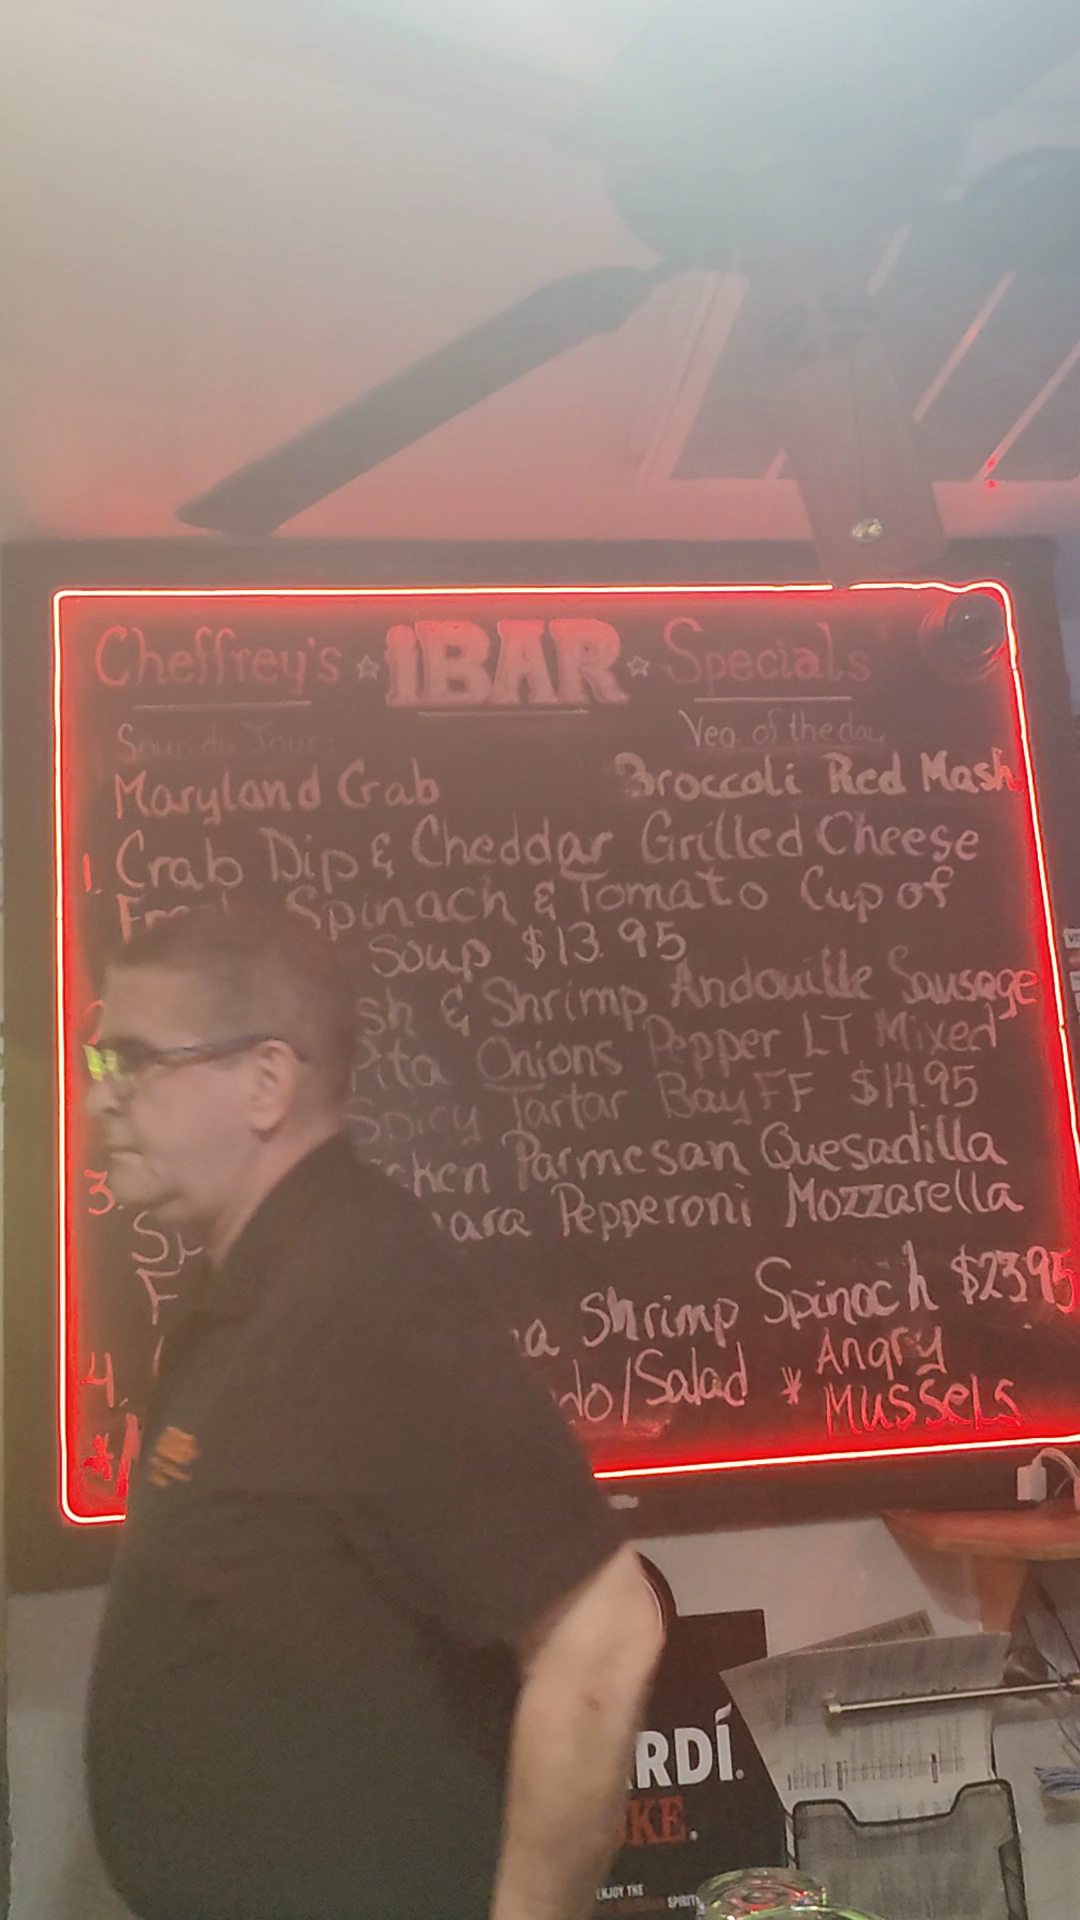 Cheffrey's ☆ iBAR ☆ Specials
Soup du Jour:
Veg of the day
Maryland Crab
Broccoli Red Mash
1. Crab Dip & Cheddar Grilled Cheese
Spinach & Tomato Cup of
Soup $13.95
& Shrimp Andouille Sausage
Pita Onions Pepper LT Mixed
Spicy Tartar Bay FF $14.95
3. Parmesan Quesadilla
Pepperoni Mozzarella
4. Shrimp Spinach $23.95
/Salad * Angry
Mussels
ENJOY THE
SPIRIT